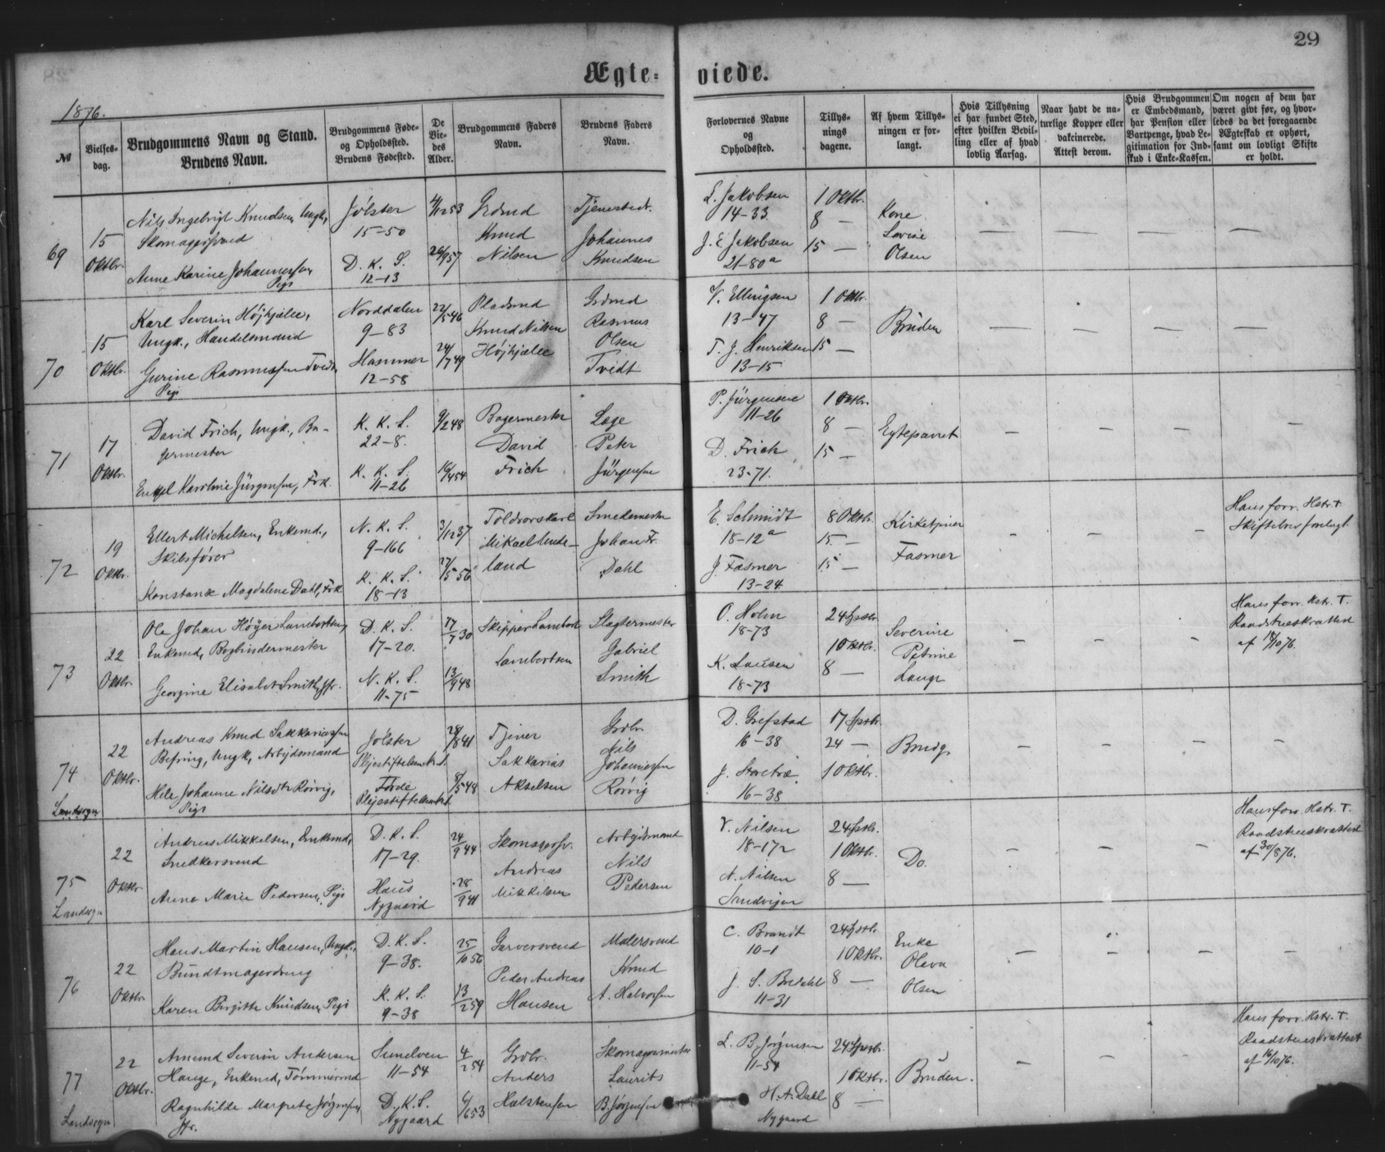 29
Ægte- viede.
1876.
№
Vielses-
dag.
Brudgommens Navn og Stand.
Brudens Navn.
Brudgommens Føde-
og Opholdssted.
Brudens Fødested.
De
Vie-
des
Alder.
Brudgommens Faders
Navn.
Brudens Faders
Navn.
Forlovernes Navne
og
Opholdssted.
Tillys-
nings
dagene.
Af hvem Tillys-
ningen er for-
langt.
Hvis Tillysning
ei har fundet Sted,
efter hvilken Bevil-
ling eller af hvad
lovlig Aarsag.
Naar havt de na-
turlige Kopper eller
vakcinerede.
Attest derom.
Hvis Brudgommen
er Embedsmand,
har Pension eller
Vartpenge, hvad Le-
gitimation for Ind-
skud i Enke-Kassen.
Om nogen af dem har
været givt før, og hvor-
ledes da det foregaaende
Ægteskab er ophørt,
samt om lovligt Skifte
er holdt.
69
15
Oktbr.
Nils Ingebrigt Knudsen, Ungk.,
Anne Karine Johannessen
Pige
Jølster
15-50
D. K. S.
12-13
Grdmd
Knud
Nilsen
Johannes
Knudsen
L. Jakobsen
14-33
J. E. Jakobsen
21-80a
1 Oktbr.
8 —
15 —
Kone
Lovise
Olsen
70
15
Oktbr.
Karl Severin Højhjelle,
Ungk., Handelsmand
Gurine Rasmussen Tvedt,
Pige
Norddalen
9-83
Hammer
12-58
22/5 46
24/7 49
Pladsmd
Knud Nilsen
Højhjelle
Grdmd
Rasmus
Olsen
Tvedt
V. Ellingsen
13-47
T. J. Henriksen
13-15
1 Oktbr.
8 —
15 —
Bruden
71
17
Oktbr.
David Frich, Ungk., Ba-
germester
Engel Karoline Jürgensen, Frk.
K. K. S.
22-8.
K. K. S.
11-26
9/2 48
16/4 54
Bagermester
David
Frich
Læge
Peter
Jürgensen
P. Jürgensen
11-26
D. Frich
23-71.
1 Oktbr.
8 —
15 —
Egteparret
72
19
Oktbr.
Ellert Michelsen, Enkemd.,
Skibsfører
Konstanse Magdalene Dahl, Frk.
N. K. S.
9-166
K. K. S.
18-13
3/12 37
27/5 56
Toldvorskarl
Mikael Linde-
land
Smedemester
Johan Fr.
Dahl
E. Schmidt
18-12a
J. Fasmer
13-24
8 Oktbr.
15 —
15 —
Kirketjener
Fasmer
Hans forr. Hstr. †
73
22
Oktbr.
Ole Johan Höyer Lambertsen,
Enkemd, Bogbindermester
Georgine Elisabet Smith, Jfr.
D. K. S.
17-20.
N. K. S.
11-75
17/7 30
13/9 48
Skipper Lambert
Lambertsen
Slagtermester
Gabriel
Smith
O. Holm
18-73
K. Larsen
18-73
24 Septbr.
1 Oktbr.
8 —
Severine
Petrine
Lange
Hans forr. Hstr. †.
Raadstueskrattest
af 18/10 76.
74
Landsogn
22
Oktbr.
Andreas Knud Sakkariassen
Befring, Ungk, Arbejdsmand
Hele Johanne Nilsdtr Rörvig,
Pige
Jølster
Førde
28/8 41
8/5 48
Tjener
Sakkarias
Akselsen
Grdbr.
Nils
Johannessen
Rörvig
D. Grefstad
16-38
16-38
17 Septbr.
24 —
1 Oktbr.
Brudg.
75
Landsogn
22
Oktbr.
Andreas Mikkelsen, Enkemd,
Snedkersvend
Anna Marie Pedersen, Pige
D. K. S.
17-29.
Haus
Nygaard
24/9 44
28/9 41
Andreas
Mikkelsen
Arbejdsmand
Nils
Pedersen
V. Nilsen
18-172
N. Nilsen
Sandvigen
24 Septbr.
1 Oktbr.
8 —
Do.
Hans forr. Hstr. †.
Raadstueskrattest
af 30/8 76.
76
22
Oktbr.
Hans Martin Hansen, Ungk.,
Bundtmagerdreng
Karen Birgitte Knudsen, Pige
D. K. S.
9-38.
K. K. S.
9-38
25/10 56
13/2 59
Garversvend
Peder Andreas
Hansen
Malersvend
Knud
A. Halvorsen
C. Brandt
10-1
11-31
24 Septbr.
1 Oktbr.
8 —
Enke
Oleva
Olsen
77
Landsogn
22
Oktbr.
Amund Severin Andersen
Hauge, Enkemd, Tømmermd
Ragnhilde Margrete Jørgensen,
Jfr.
Sundven
11-54
D. K. S.
Nygaard
4/2 54
4/6 53
Grdbr.
Anders
Halstensen
Skomagermester
Laurits
B. Jørgensen
L. B. Jørgensen
11-54
H. A. Dahl
Nygaard
24 Septbr.
1 Oktbr.
8 —
Bruden.
Hans forr. Hstr. †.
Raadstueskrattest
af 16/10 76.